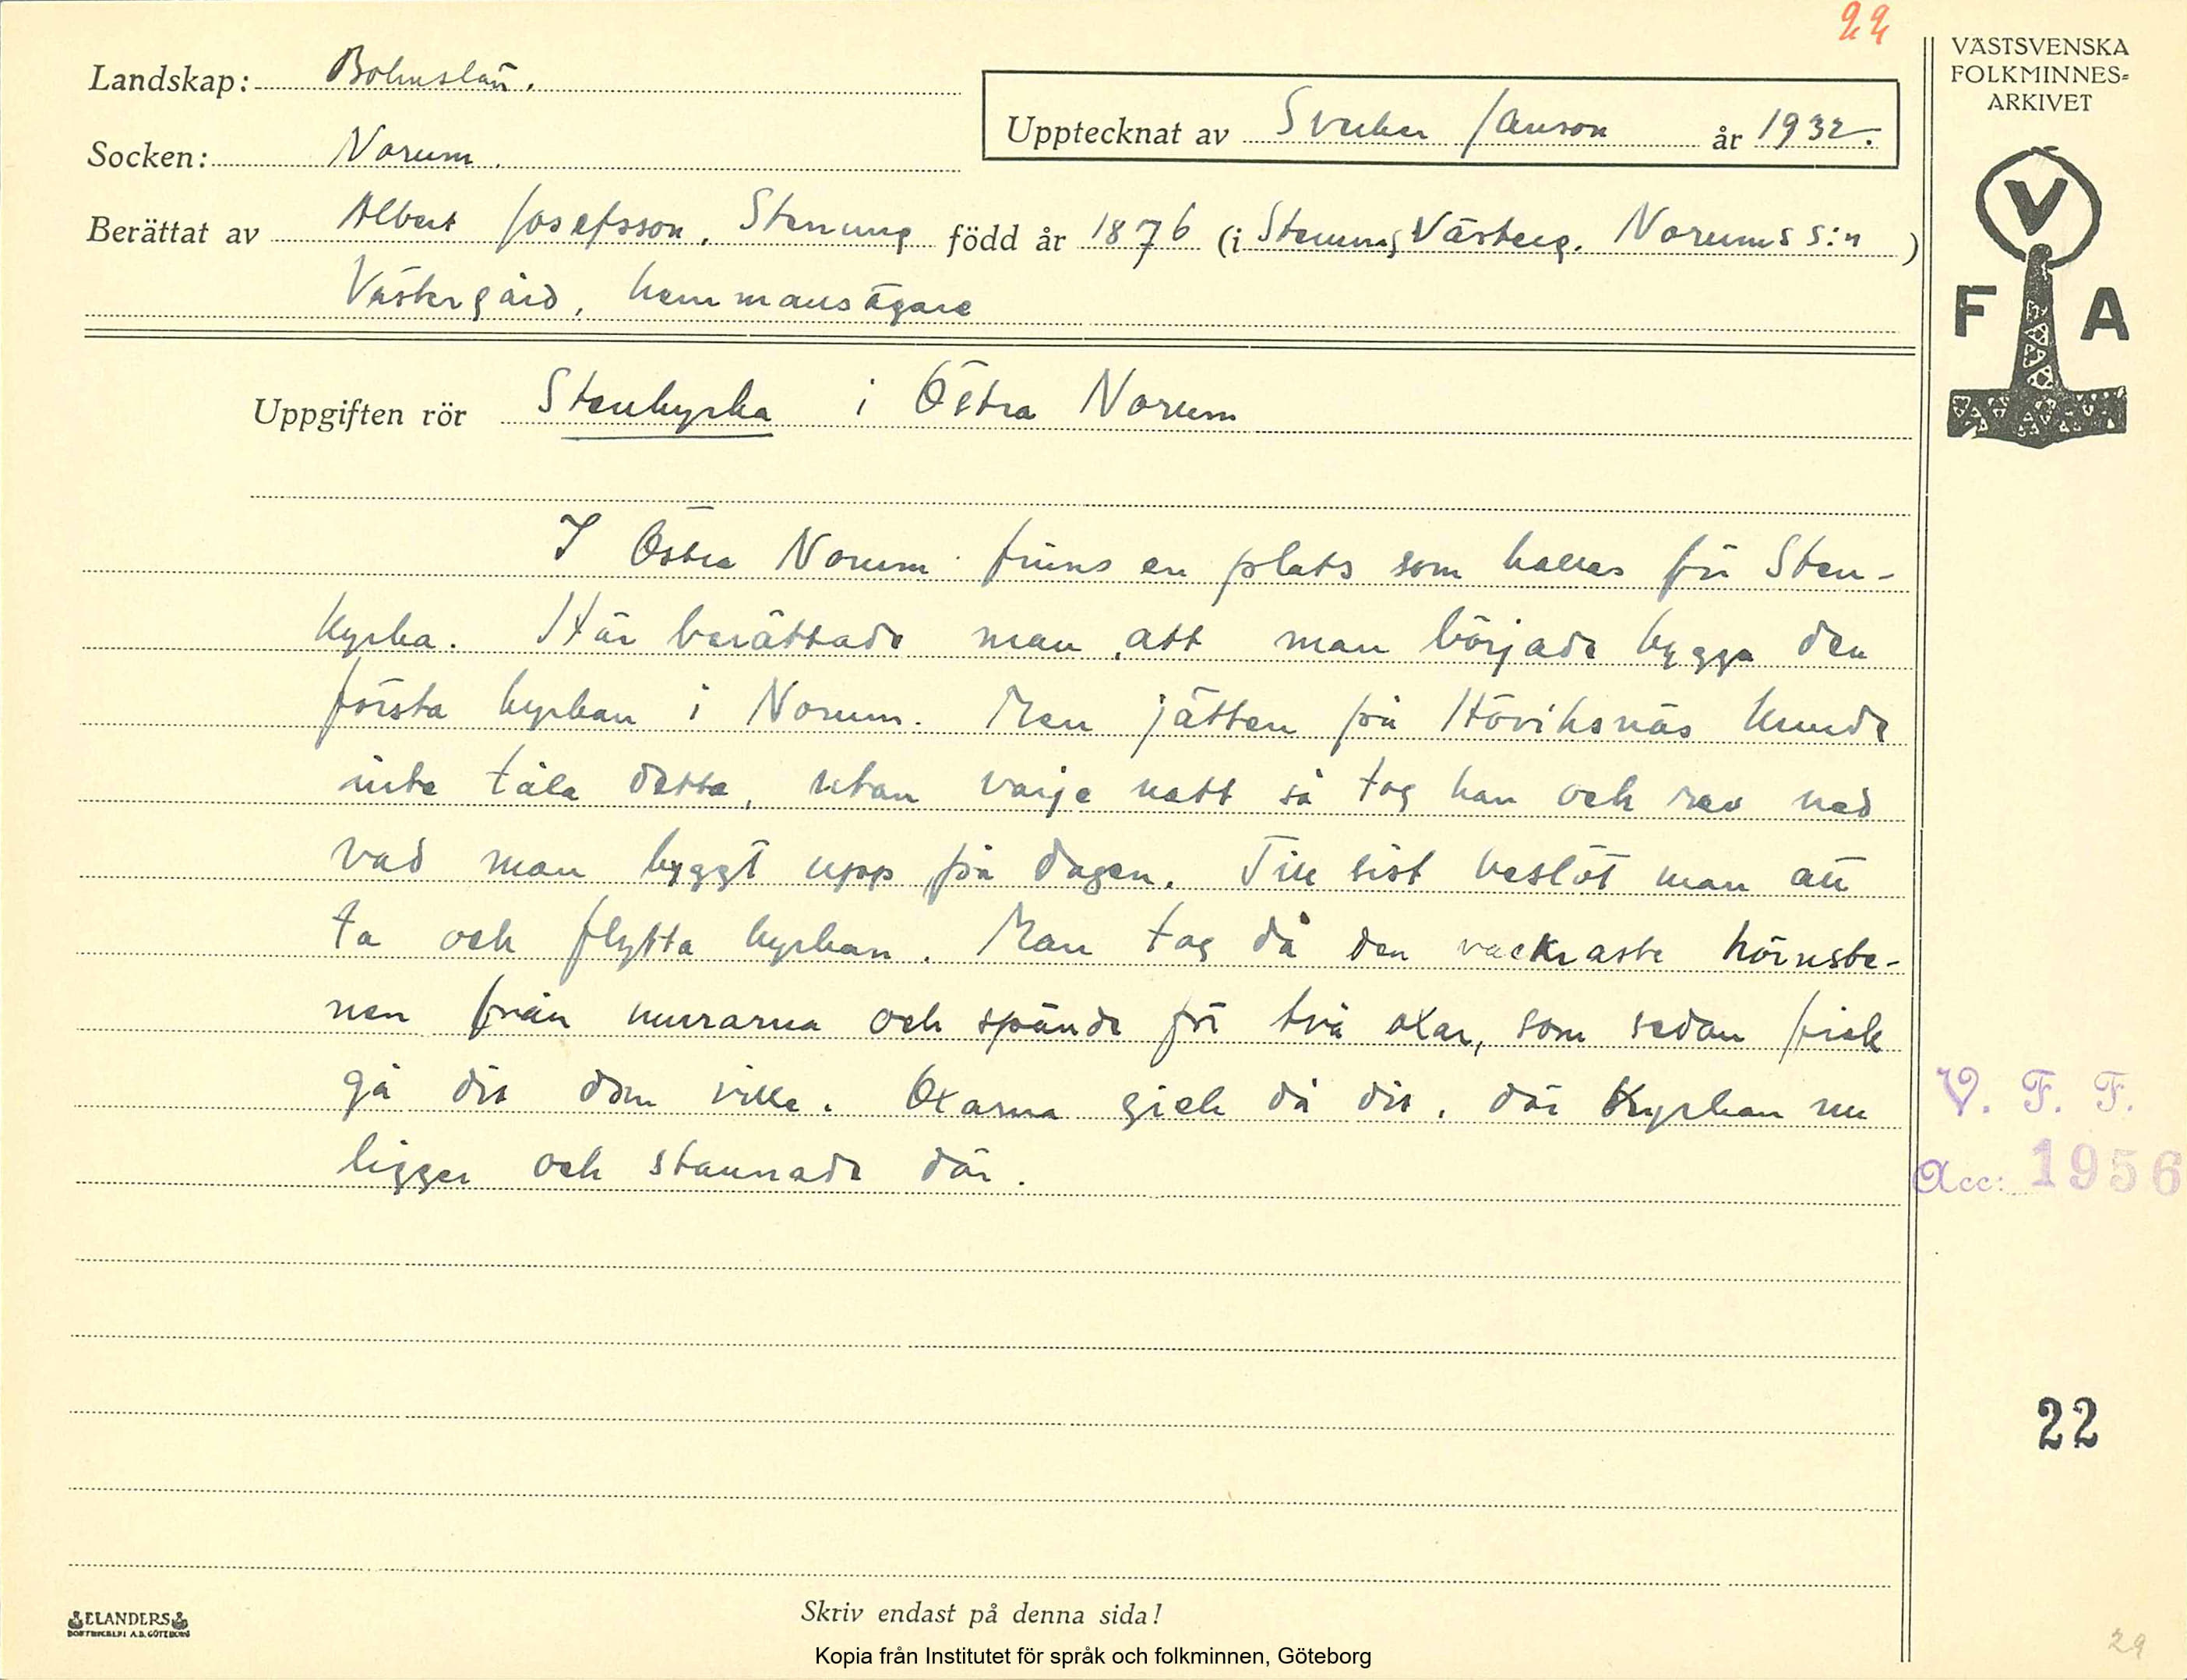 22
VÄSTSVENSKA
FOLKMINNES=
ARKIVET
Landskap: Bohuslän.
Upptecknat av Sverker Janson år 1932.
Socken: Norum.
Berättat av Albert Josefsson, Stenung född år 1876 (i Stenung Västerg. Norums s:n)
Västergård, hemmansägare
V
F A
Uppgiften rör Stenkyrka i Östra Norum
I Östra Norum finns en plats som kallas för Sten-
kyrka. Här berättade man att man började bygga den
första kyrkan i Norum. Men jätten på Höviksnäs kunde
inte tåla detta, utan varje natt så tog han och rev ned
vad man byggt upp på dagen. Till sist beslöt man att
ta och flytta kyrkan. Man tog då den vackraste hörnste-
nen från murarna och spände för två oxar, som sedan fick
gå dit dom ville. Oxarna gick då dit, där Kyrkan nu
ligger och stannade där.
V. F. F.
Acc: 1956
22
ELANDERS
BOKTRYCKERI A.B. GÖTEBORG
Skriv endast på denna sida!
Kopia från Institutet för språk och folkminnen, Göteborg
29